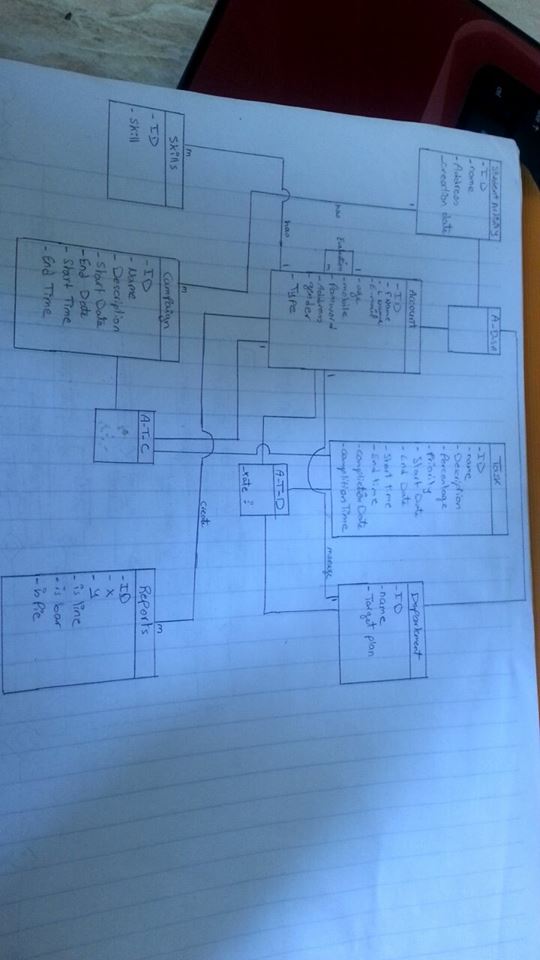 Student Activity
- ID
- name
- Address
- creation date
Task
- ID
- name
- Description
- Percentage
- Priority
- Start Date
- End Date
- Start time
- End time
- completion Date
- complition Time
Account
- ID
- F Name
- L Name
- E-mail
- age
- mobile
- Password
- Address
- gender
- Type
Department
- ID
- name
- Target plan
1
has
1
m
1
manage
1
has
1
1
A-T-D
- rate :
create
m
m
m
Skills
- ID
- skill
Campaign
- ID
- Name
- Description
- Start Date
- End Date
- Start Time
- End Time
A-T-C
Reports
- ID
- X
- y
- is line
- is bar
- is Pie